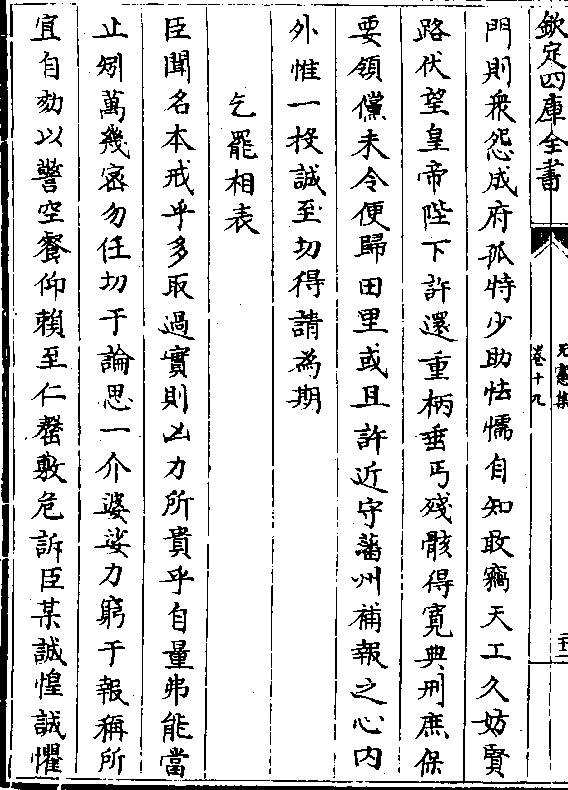 欽定四庫全書
元憲集
卷十九
門則衆怨成府孤特少助怯懦自知敢竊天工久妨賢
路伏望皇帝陛下許還重柄垂丐殘骸得寛典刑庶保
要領儻未令便歸田里或且許近守藩州補報之心内
外惟一投誠至切得請為期
乞罷相表
臣聞名本戒乎多取過實則凶力所貴乎自量弗能當
止矧萬幾宻勿任切于論思一介婆娑力窮于報稱所
宜自劾以警空餐仰頼至仁罄敷危訴臣某誠惶誠懼